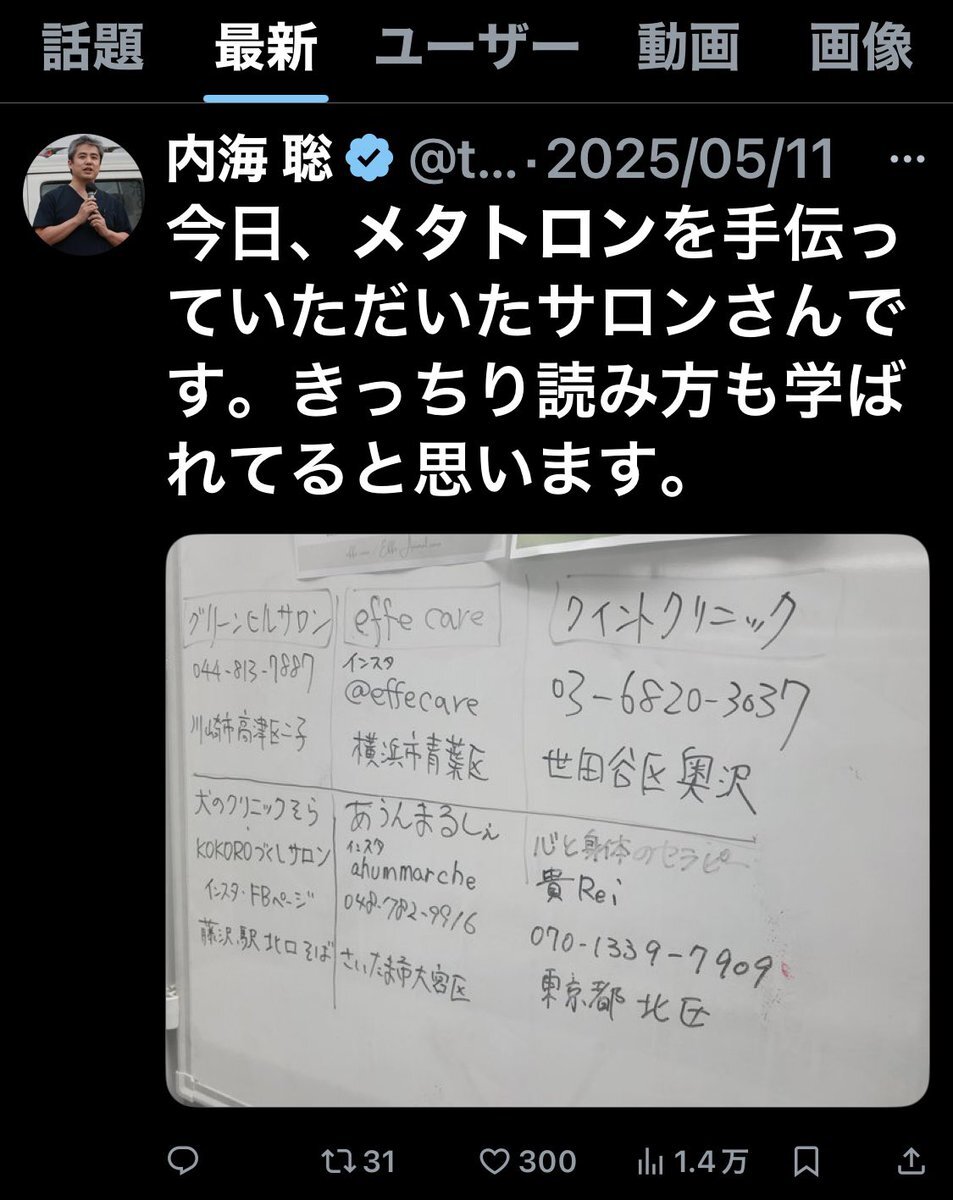 話題 最新 ユーザー 動画 画像
内海 聡 @t... · 2025/05/11
今日、メタトロンを手伝っ
ていただいたサロンさんで
す。きっちり読み方も学ば
れてると思います。
グリーンヒルサロン
044-813-7887
川崎市高津区二子
effe care
インスタ
@effecare
横浜市青葉区
クイントクリニック
03-6820-3037
世田谷区奥沢
犬のクリニックそら
KOKOROづくしサロン
インスタ・FBページ
藤沢駅北口そば
あうんまるしぇ
インスタ
ahummarche
048-782-9916
さいたま市大宮区
心と身体のセラピー
貴Rei
070-1339-7909
東京都北区
31 300 1.4万